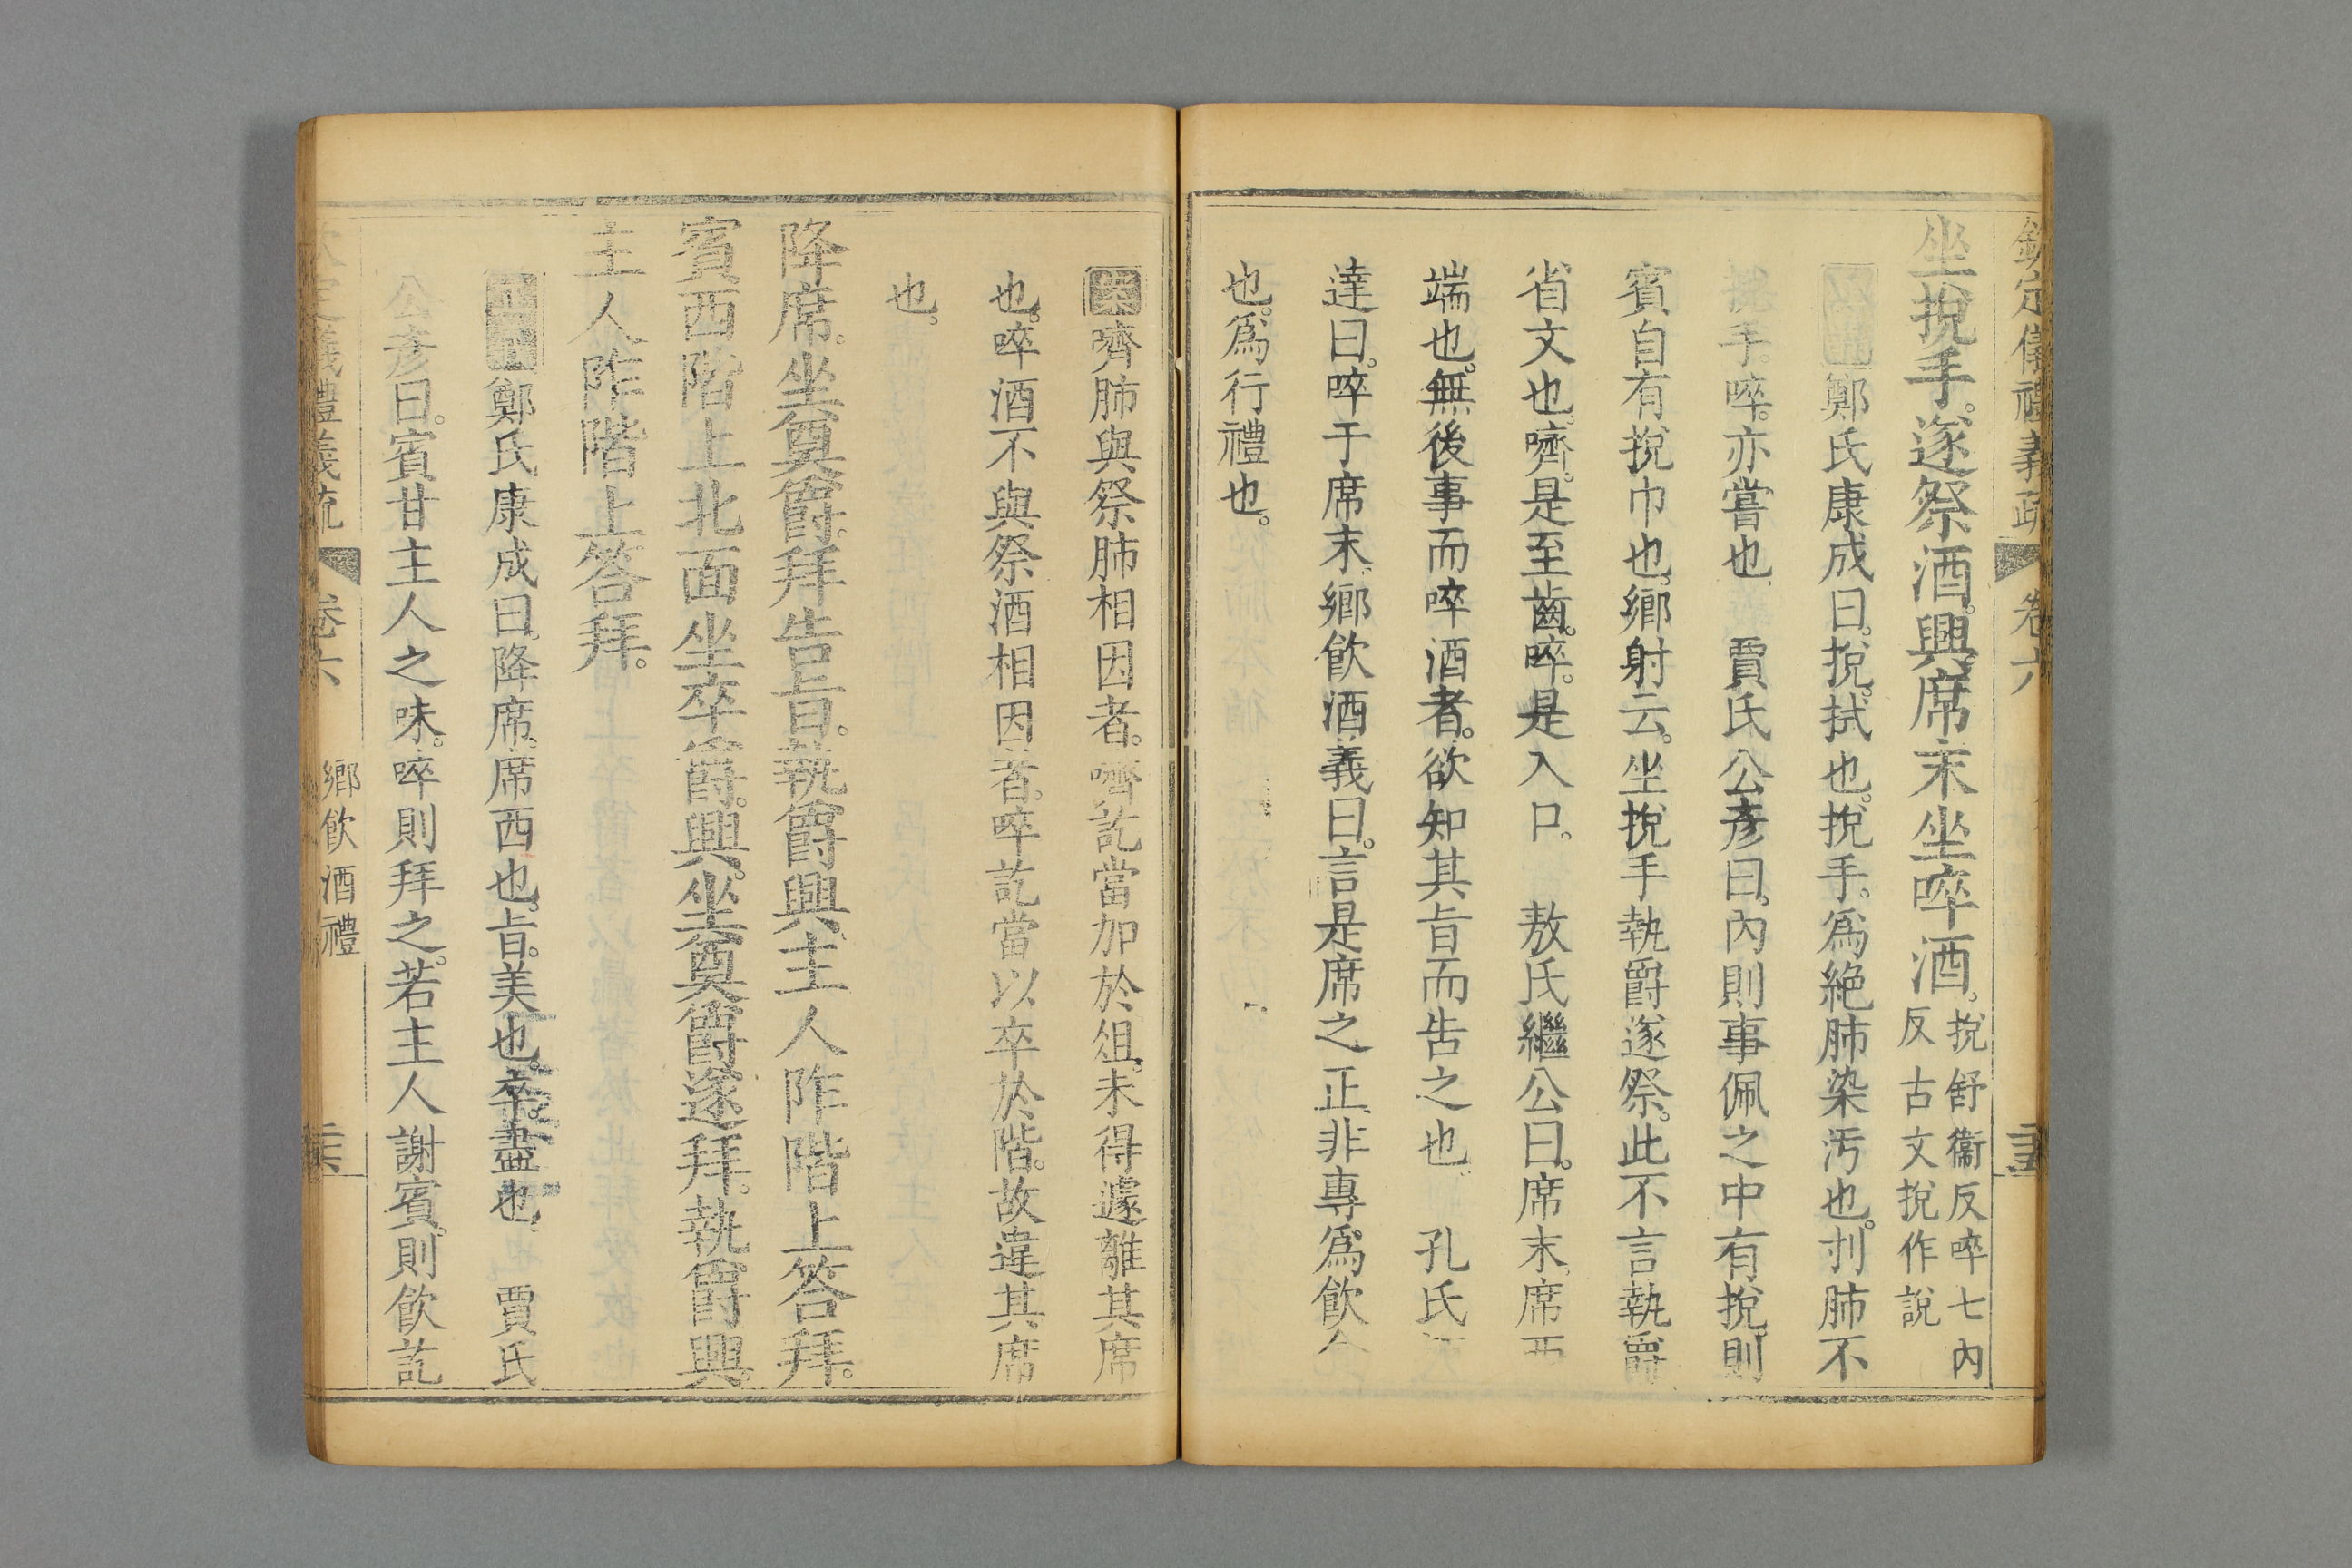 欽定儀禮義疏 卷六
坐挩手。遂祭酒。興。席末坐啐酒。挩舒衞反啐七內
反古文挩作說
鄭氏康成曰。挩。拭也。挩手。爲絶肺染汚也。刌肺不
手。啐。亦嘗也 賈氏公彥曰。內則事佩之中有挩。則
賓自有挩巾也。鄉射云。坐挩手執爵遂祭。此不言執爵
省文也。嚌。是至齒。啐。是入口。 敖氏繼公曰。席末。席西
端也。無後事而啐酒者。欲知其旨而告之也 孔氏
達曰。啐于席末。鄉飮酒義曰。言是席之正。非專爲飮食
也。爲行禮也。
案嚌肺與祭肺相因者。嚌訖當加於俎。未得遽離其席
也。啐酒不與祭酒相因者。啐訖當以卒於階。故違其席
也。
降席。坐奠爵。拜告旨。執爵興。主人阼階上答拜。
賓西階上北面坐卒爵。興。坐奠爵。遂拜。執爵興。
主人阼階上答拜。
正義鄭氏康成曰。降席。席西也。旨。美也。卒。盡也。 賈氏
公彥曰。賓甘主人之味。啐則拜之。若主人謝賓。則飮訖
定儀禮義疏 卷六 鄉飮酒禮